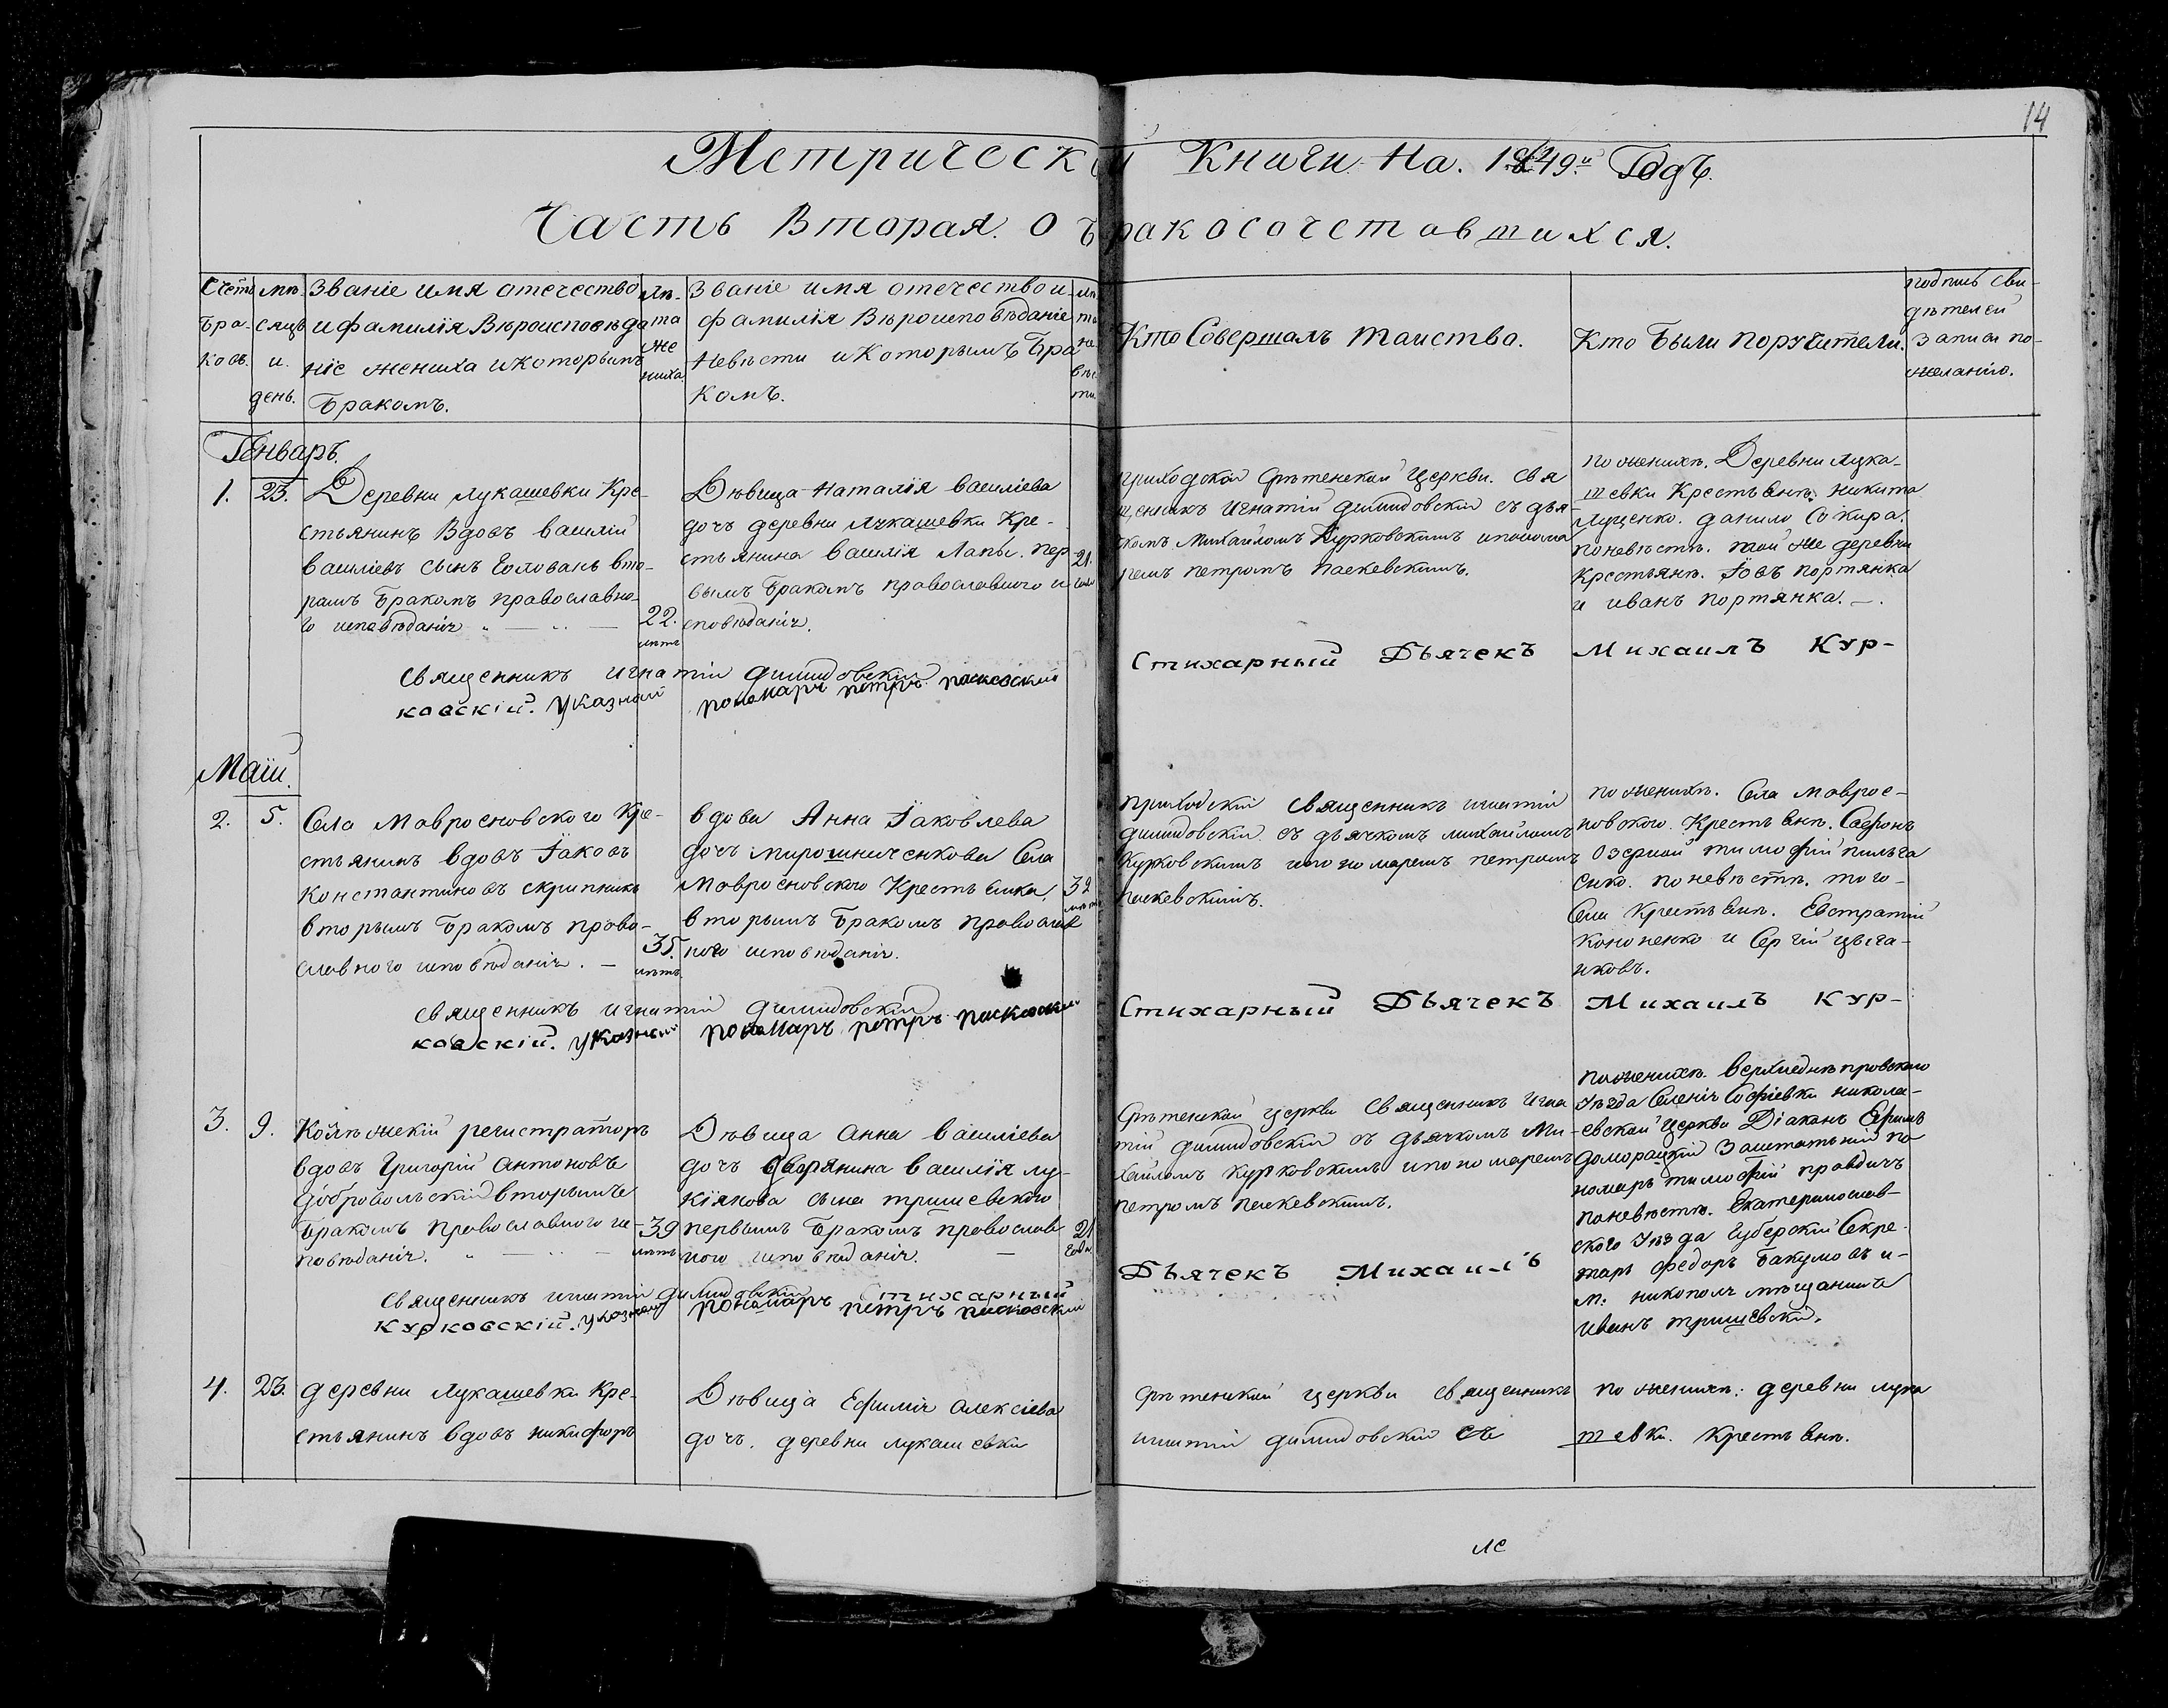 14
Метрической Книги На. 1849й Годъ.
Часть Вторая. О Бракосочетавшихся.
Счетъ Бра- ковъ.
мѣ- сяцъ и. день.
Званіе имя отечество
и фамилія Вѣроисповѣда
ніе жениха и Которымъ
Бракомъ.
лѣ- та же ниха.
Званіе имя отечество и
фамилія Вѣроисповѣданіе
Невѣсти и Которымъ Бра
комъ.
лѣ та не вѣс ти
Кто Совершалъ таиство.
Кто Были Поручители.
подпись сви-
дѣтелей
Записи по-
желанію.
Генварь.
1. 23.
Деревни Лукашевки Кре-
стьянинъ Вдовъ василій
василіевъ сынъ Головань вто-
рымъ Бракомъ православно-
го исповѣданія
22. лѣтъ
Дѣвица Наталія василіева
дочъ деревни Лукашевки Кре-
стьянина василія Лапы. пер-
вымъ Бракомъ православного и
сповѣданія.
21. года
приходской Срѣтенской Церкви. Свя
щенникъ Игнатій Димидовскій съ дья-
комъ Михайломъ Курковскимъ и понома
ремъ петромъ паскевскимъ.
по женихѣ. Деревни Лука-
шевки Крестьянѣ. Никита
Луценко. данило Сокира.
по невѣстѣ. той же деревни
Крестьянѣ. Іовъ портянка
и иванъ портянка.
Священникъ Игнатій Димидовскій
Стихарный Дьячекъ Михаилъ Кур-
ковскій. Указный пономарь петръ паскевскій
Маіи.
2. 5.
Села Мавроеновского Кре-
стьянинъ вдовъ Іаковъ
Константиновъ скрипникъ
вторымъ Бракомъ право-
славного исповѣданія.
35. лѣтъ.
вдова Анна Іаковлева
дочъ мирошниченкова Села
Мавроеновского Крестьянка,
вторымъ Бракомъ православ
ного исповѣданія.
32 лѣта
приходскій Священникъ игнатій
димидовскій съ дьячкомъ михайломъ
Курковскимъ и пономаремъ петромъ
паскевскимъ.
по женихѣ. Села маврое-
новского. Крестьянѣ. Сафронъ
Озерной тимофій
по невѣстѣ. того-
Села Крестьянѣ. Евстратій
кононенко и Сергій цыга-
нковъ.
Священникъ Игнатій Димидовскій
Стихарный Дьячекъ Михаилъ Кур-
ковскій. Указный пономарь петръ паскевскій
3. 9.
Колѣжскій регистраторъ
вдовъ Григорій антоновъ
Добровольскій вторымъ
Бракомъ православного ис-
повѣданія.
39 лѣтъ
Дѣвица анна василіева
дочъ дворянина василія лу-
кіянова сына тришевского
первымъ Бракомъ православ
ного исповѣданія.
21 года
Срѣтенской церкви Священникъ Игна
тій Димидовскій съ дьячкомъ Ми-
хайломъ Курковскимъ и пономаремъ
петромъ паскевскимъ.
по женихѣ. Верхнеднѣпровского
Уѣзда Селенія Софіевки никола-
евской Церкви Діаконъ Ефимъ
доморацкій Заштатьній по
номарь тимофій правдичъ
по невѣстѣ. Екатеринослав-
ского Уѣзда Губерскій Секре-
тарь Федоръ Бакумовъ и-
м: никополя мѣщанинъ
иванъ тришевскій.
Священникъ игнатій димидовскій Стихарный
Дьячекъ Михаилъ
Курковскій. Указный пономарь петръ паскевскій
4. 23.
деревни Лукашевки Кре-
стьянинъ вдовъ никифоръ
Дѣвица Ефимія алексіева
дочъ. деревни лукашевки
Срѣтенской церкви Священникъ
игнатій димидовскій съ
по женихѣ: деревни лука
шевки. Крестьянѣ.